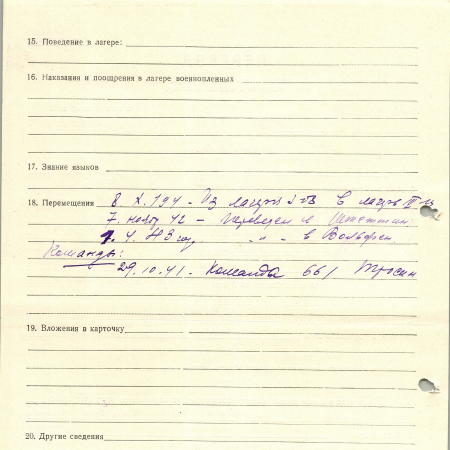 15. Поведение в лагере:
16. Наказания и поощрения в лагере военнопленных
17. Знание языков
18. Перемещения 8 X.194- Из лагеря в лагерь
7. нояб 42 – переведен в Штеттин
1. 4. 43 год " - " - в Вольфен
Команды:
29.10.41. Команда 661 Тросин
19. Вложения в карточку
20. Другие сведения